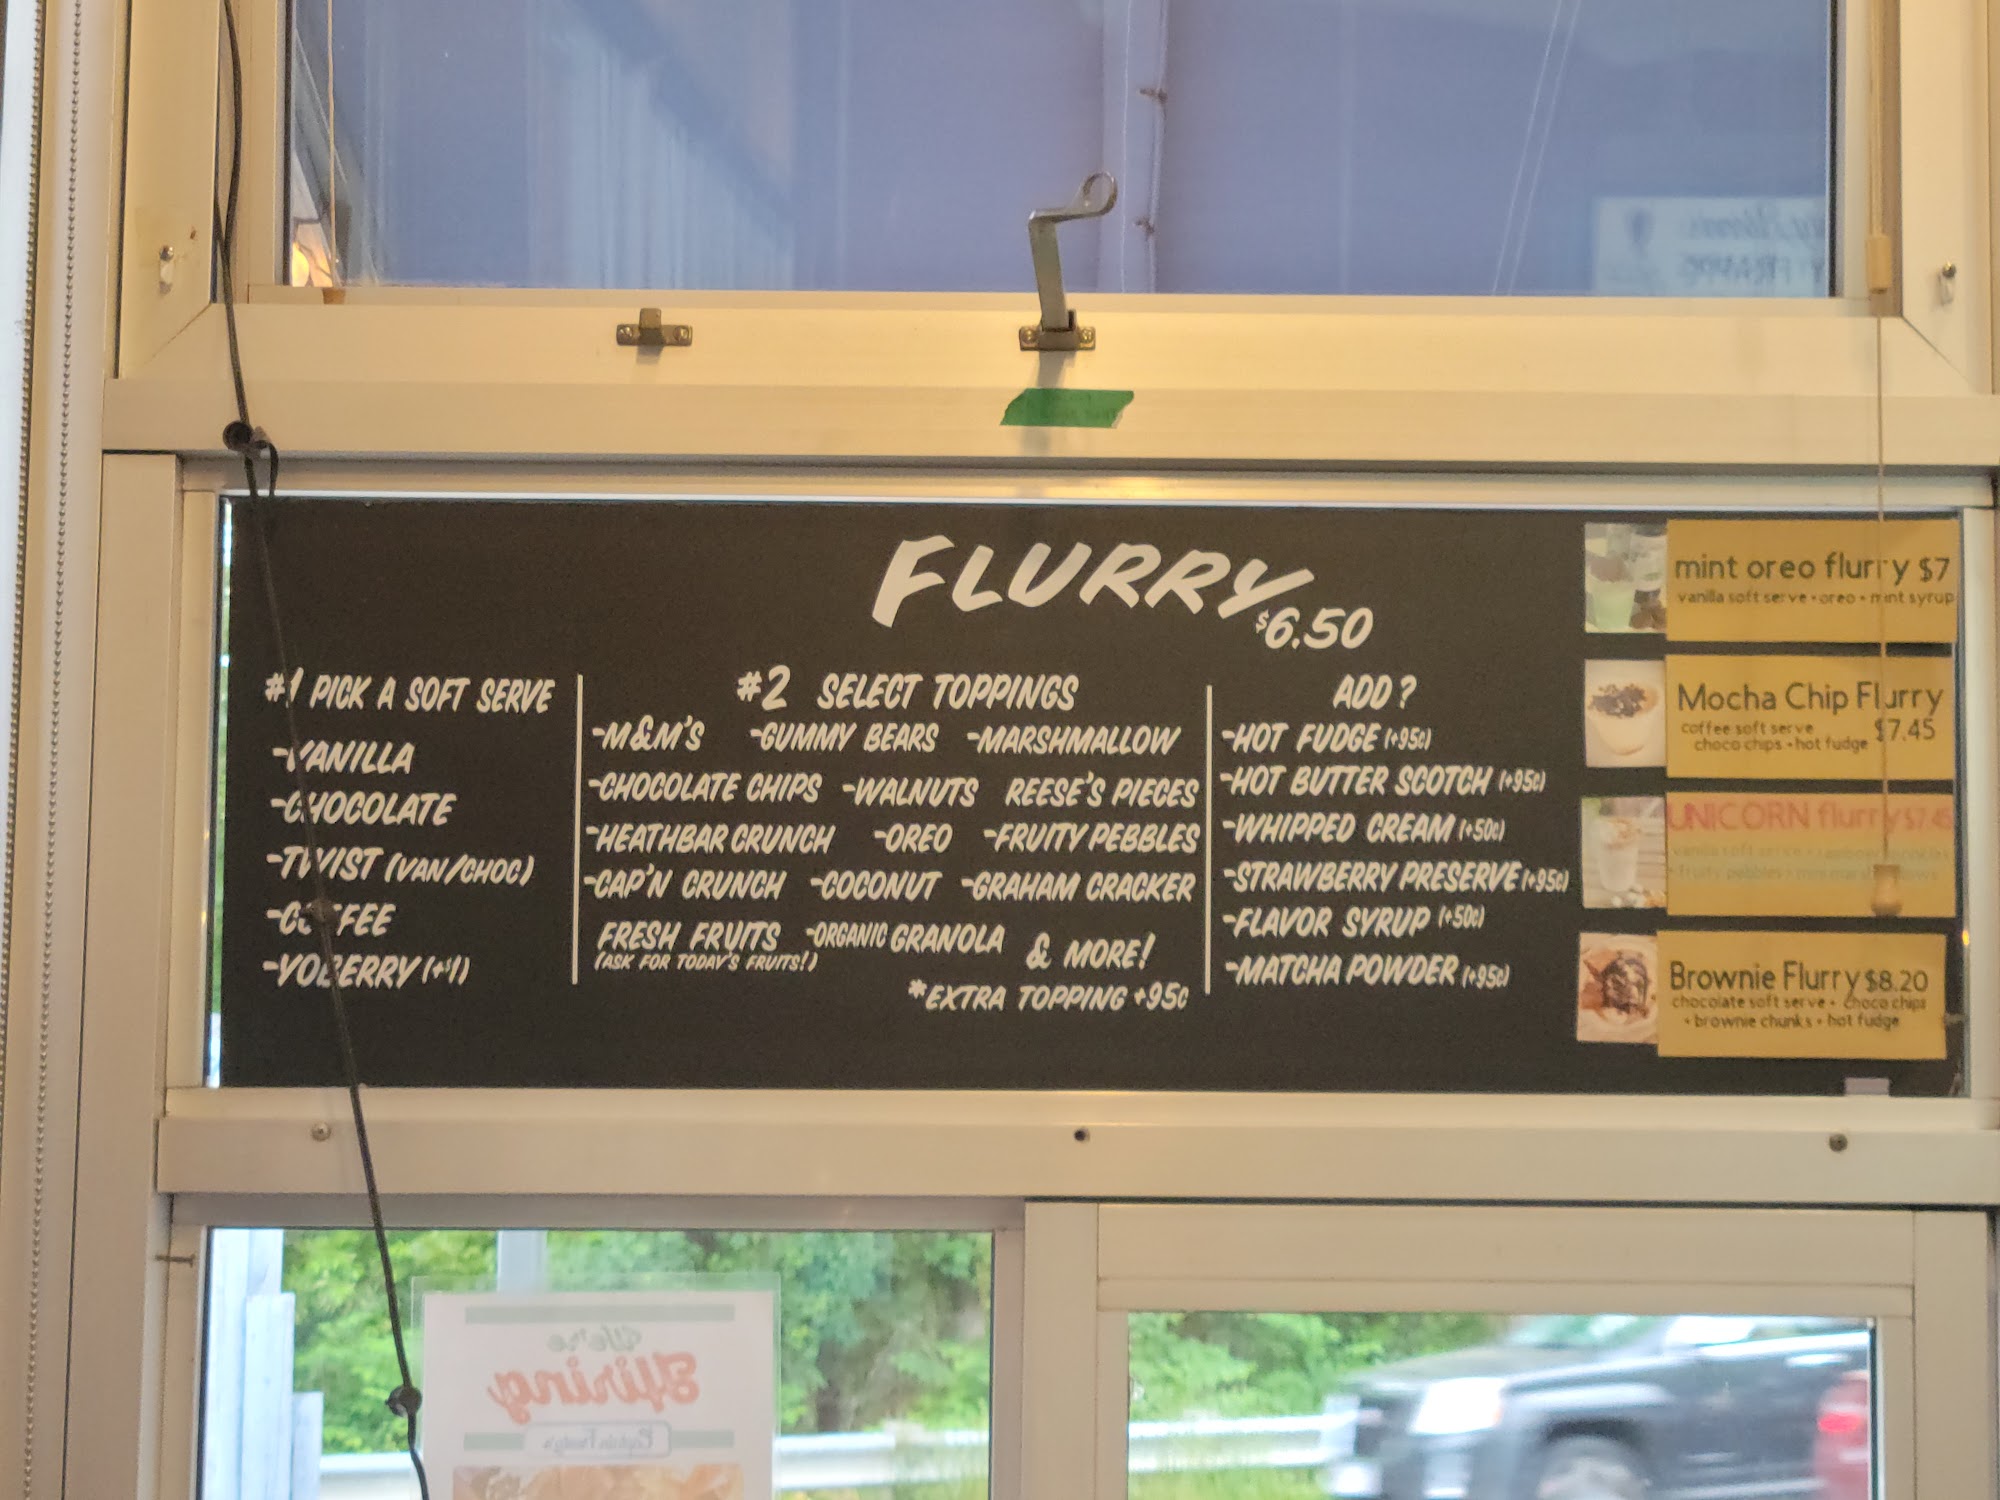 FLURRY
$6.50
#1 PICK A SOFT SERVE
-VANILLA
-CHOCOLATE
-TWIST (VAN/CHOC)
-COFFEE
-YOBERRY (+$1)
#2 SELECT TOPPINGS
-M&M'S -GUMMY BEARS -MARSHMALLOW
-CHOCOLATE CHIPS -WALNUTS REESE'S PIECES
-HEATHBAR CRUNCH -OREO -FRUITY PEBBLES
-CAP'N CRUNCH -COCONUT -GRAHAM CRACKER
FRESH FRUITS -ORGANIC GRANOLA & MORE!
(ASK FOR TODAY'S FRUITS!)
*EXTRA TOPPING +95¢
ADD?
-HOT FUDGE (+95¢)
-HOT BUTTER SCOTCH (+95¢)
-WHIPPED CREAM (+50¢)
-STRAWBERRY PRESERVE (+95¢)
-FLAVOR SYRUP (+50¢)
-MATCHA POWDER (+95¢)
mint oreo flurry $7
vanilla soft serve • oreo • mint syrup
Mocha Chip Flurry
coffee soft serve $7.45
choco chips • hot fudge
UNICORN flurry $7.45
vanilla soft serve • rainbow sprinkles
• fruity pebbles • mini marshmallows
Brownie Flurry $8.20
chocolate soft serve • choco chips
• brownie chunks • hot fudge
We're
Hiring